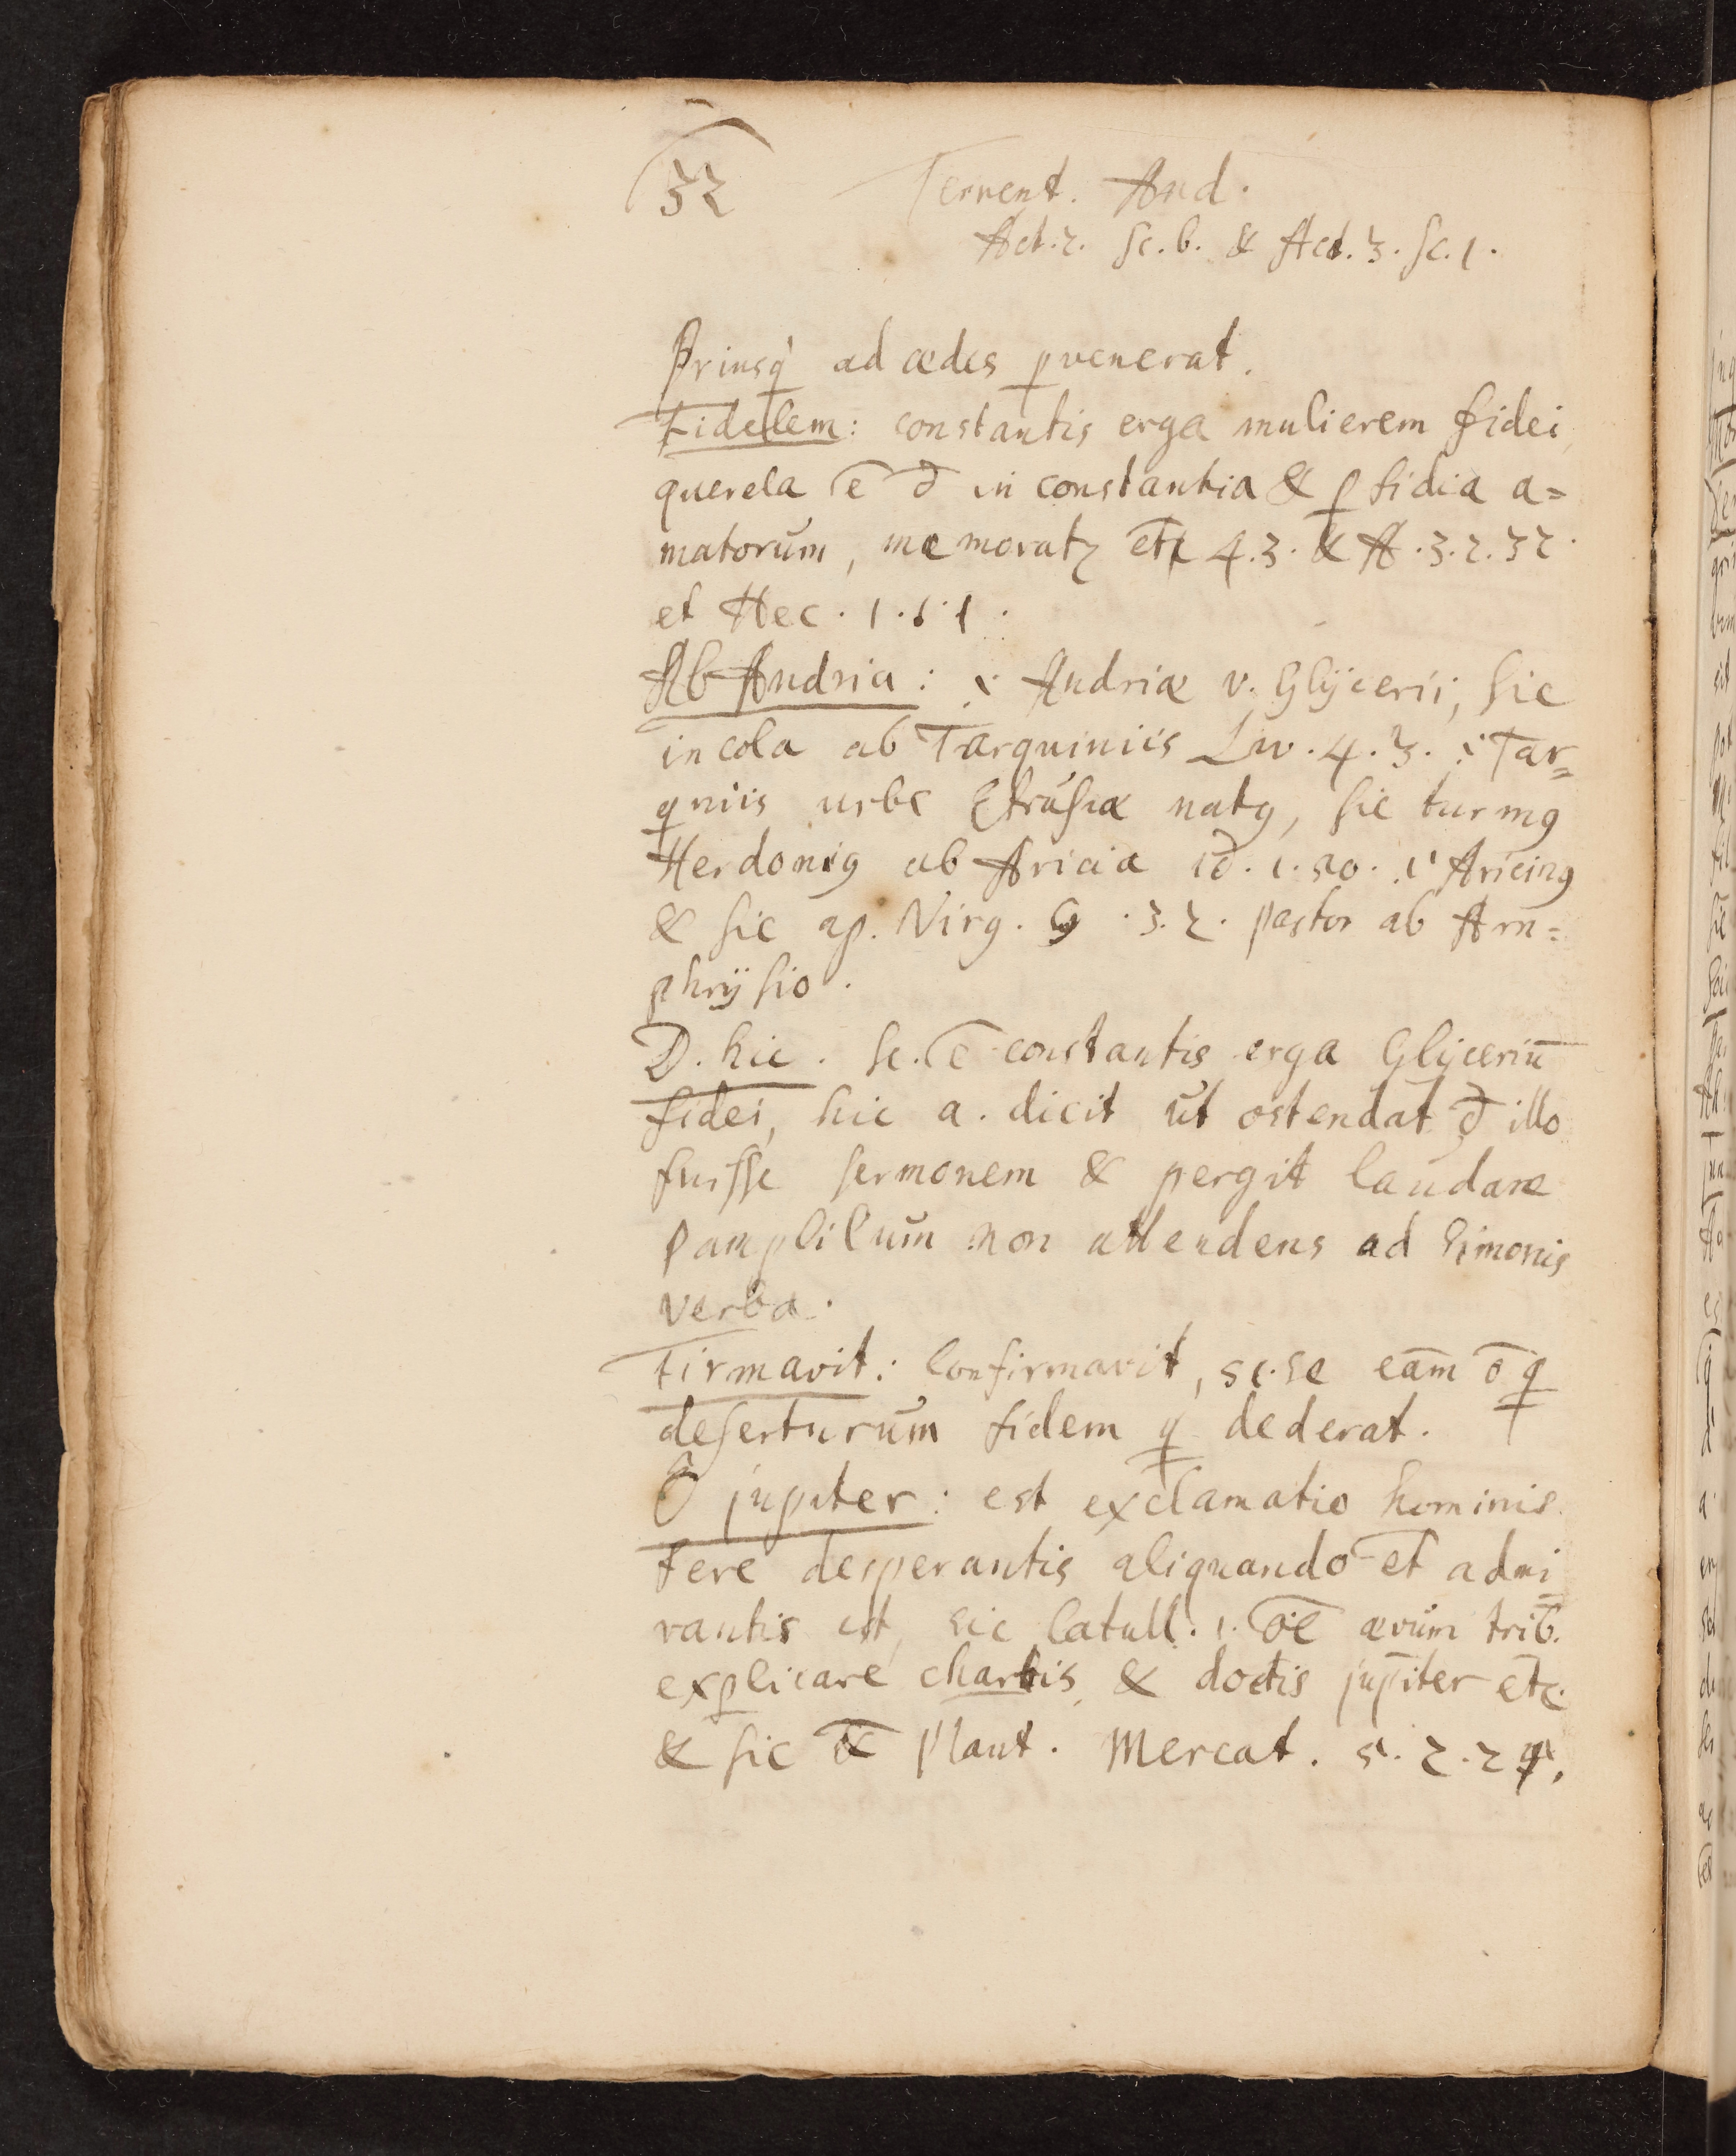 32 Terrent. And.
Act. 2. Sc. 6. & Act. 3. Sc. 1.
Priusq̀ ad ædes pvenerat.
Fidelem: constantis erga mulierem fidei,
querela ē đ in constantia & pfidia a=
matorūm, memoratꝫ 4.3. & A.3.2.32.
et Hec. 1.1.1.
Ab Andria: .i. Andriæ v. Glÿcerii, sic
incola ab Tarquiniis Liv. 4.3. .i. Tar=
qniis urbe natꝯ, sic turnꝯ
Herdoniꝯ ab Aricia iđ. 1.50. .i. Aricinꝯ
& sic ap. Virg. G .3.2. pastor ab Am=
phrÿsio.
D. hic. Sc. ē constantis erga Glÿceriū
fidei, hic a. dicit ūt ostendat đ illo
fuisse sermonem & pergit laudare
Pamphilūm non attendens ad Simonis
verba.
Firmavit: Confirmavit, sc. se eām ō q
deserturūm fidem q dederat.
Ô jupiter: est exclamatio hominis
fere desperantis aliquando et admi=
rantis est, sic Catull. 1. ōe ævūm trib.
explicare chartis & doctis jupiter etc.
& sic Plaut. Mercat. 5.2.24.